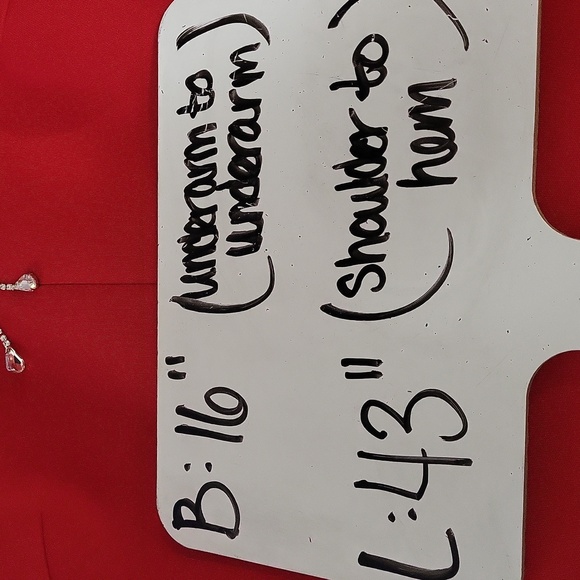 B: 16" (underarm to
underarm)
L: 43" (shoulder to
hem)